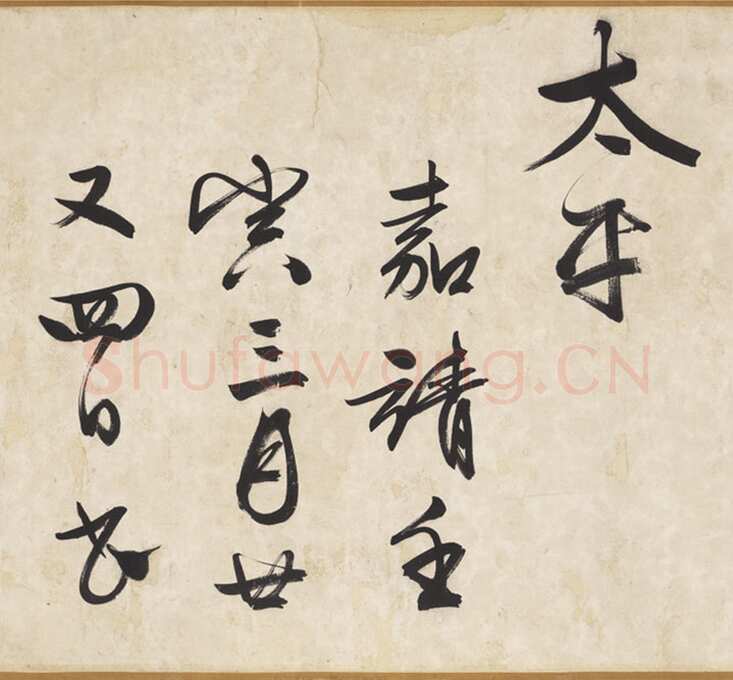 太平
嘉靖壬
寅三月廿
又四日書
Shufawang.CN